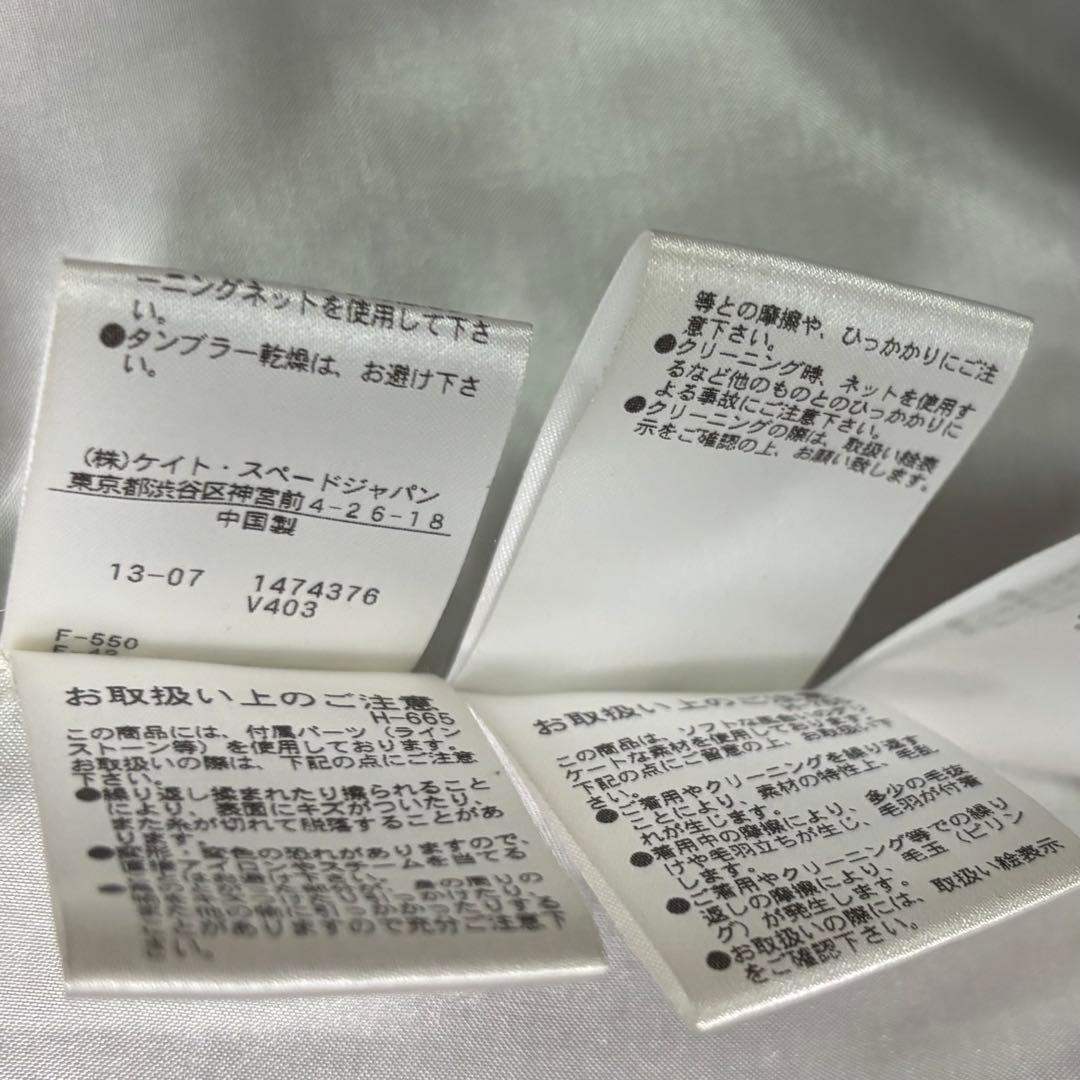 ーニングネットを使用して下さ
い。
●タンブラー乾燥は、お避け下さ
い。
(株)ケイト・スペードジャパン
東京都渋谷区神宮前4-26-18
中国製
13-07 1474376
V403
F-550
等との摩擦や、ひっかかりにご注
意下さい。
●クリーニング時、ネットを使用す
るなど他のものとのひっかかりに
よる事故にご注意下さい。
●クリーニングの際は、取扱い絵表
示をご確認の上、お願い致します。
お取扱い上のご注意
H-665
この商品には、付属パーツ(ライン
ストーン等)を使用しております。
お取扱いの際は、下記の点にご注意
下さい。
●繰り返し揉まれたり擦られること
により、表面にキズがついたり、
また糸が切れて脱落することがあ
ります。
●変形、変色の恐れがありますので、
直接アイロンやスチームを当てる
身の周りの
他の物に引っかかったりする
ことがありますので充分ご注意下
さい。
お取扱い上のご注意
この商品は、ソフトな
ケートな素材を使用して
下記の点にご留意の上、お取扱い下
さい。
●ご着用やクリーニングを繰り返す
ことにより、素材の特性上、毛乱
れが生じます。
●着用中の摩擦により、多少の毛抜
けや毛羽立ちが生じ、毛羽が付着
します。
●ご着用やクリーニング等での繰り
返しの摩擦により、毛玉(ピリン
グ)が発生します。
●お取扱いの際には、取扱い絵表示
をご確認下さい。